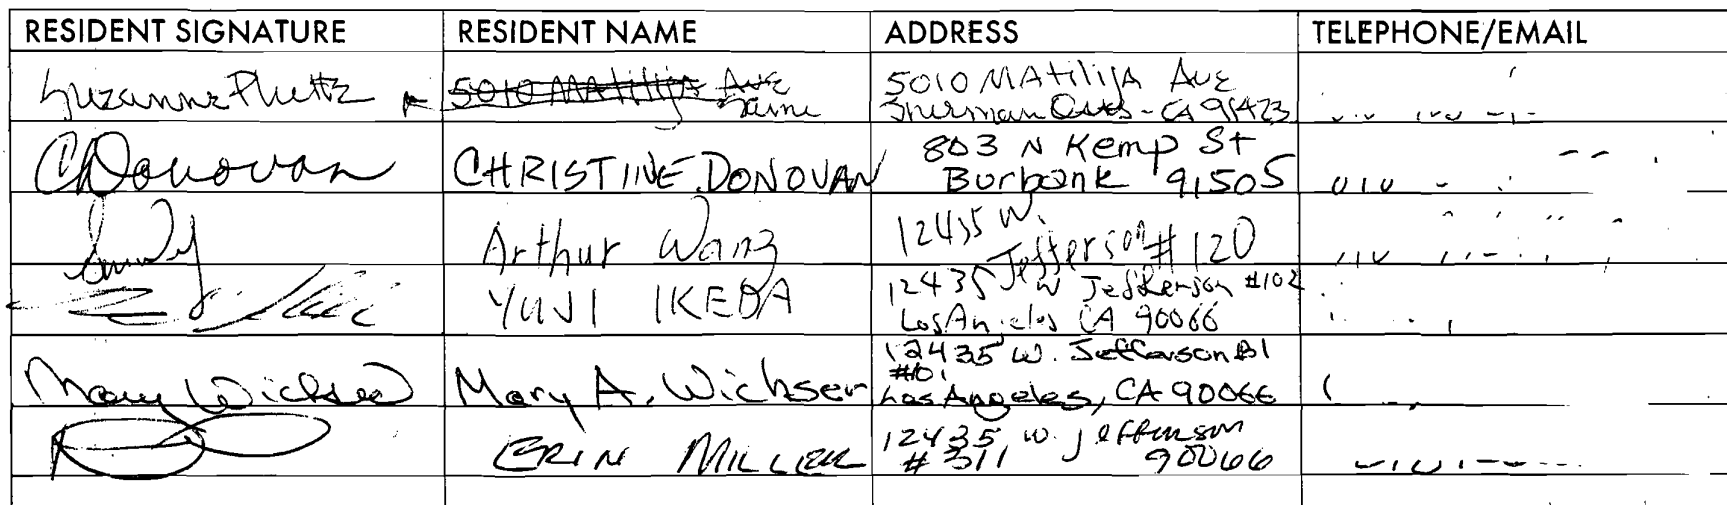 RESIDENT SIGNATURE RESIDENT NAME ADDRESS TELEPHONE/EMAIL
Suzanne 5010 MAtilijA Ave 5010 MAtilijA Ave
Same Sherman Oaks - CA 91423
CDonovan CHRISTINE DONOVAN 803 N Kemp St
Burbank 91505
Arthur Wang 12435 W.
Jefferson #120
YUJI IKEDA 12435 W Jefferson #102
Los Angeles CA 90066
Mary Wichser Mary A. Wichser 12435 W. Jefferson Bl
#101
Los Angeles, CA 90066
ERIN MILLER 12435 W. Jefferson
#311 90066